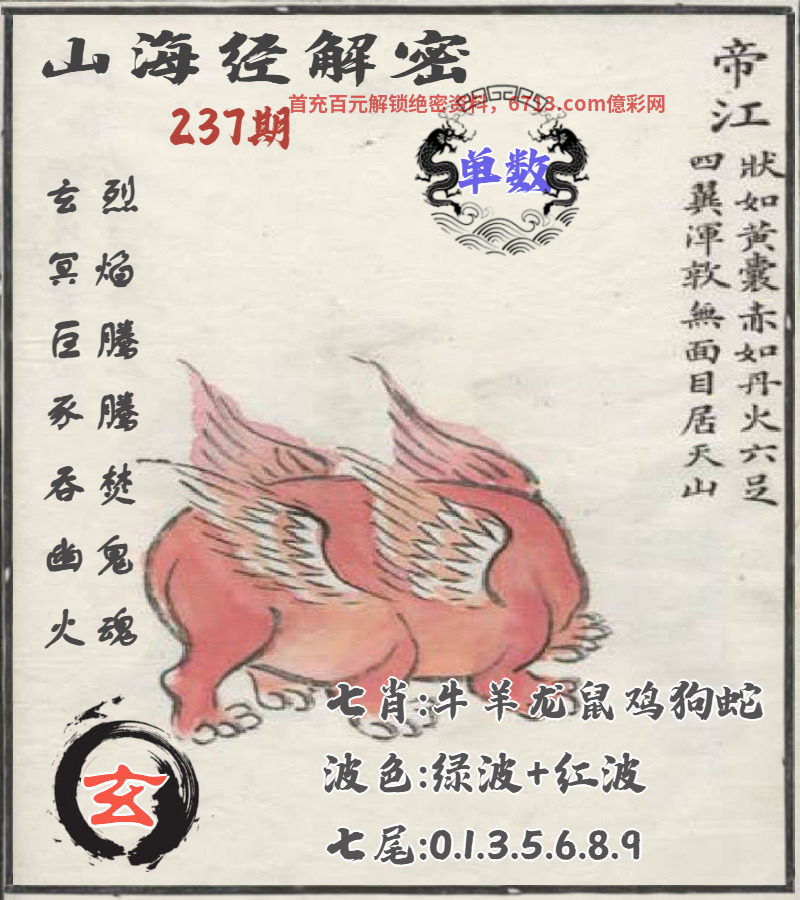 山海经解密
首充百元解锁绝密资料，6713.com億彩网
237期
单数
帝江
狀如黃囊赤如丹火六足
四翼渾敦無面目居天山
烈焰腾腾焚鬼魂
玄冥巨豕吞幽火
七肖:牛羊龙鼠鸡狗蛇
波色:绿波+红波
七尾:0.1.3.5.6.8.9
玄